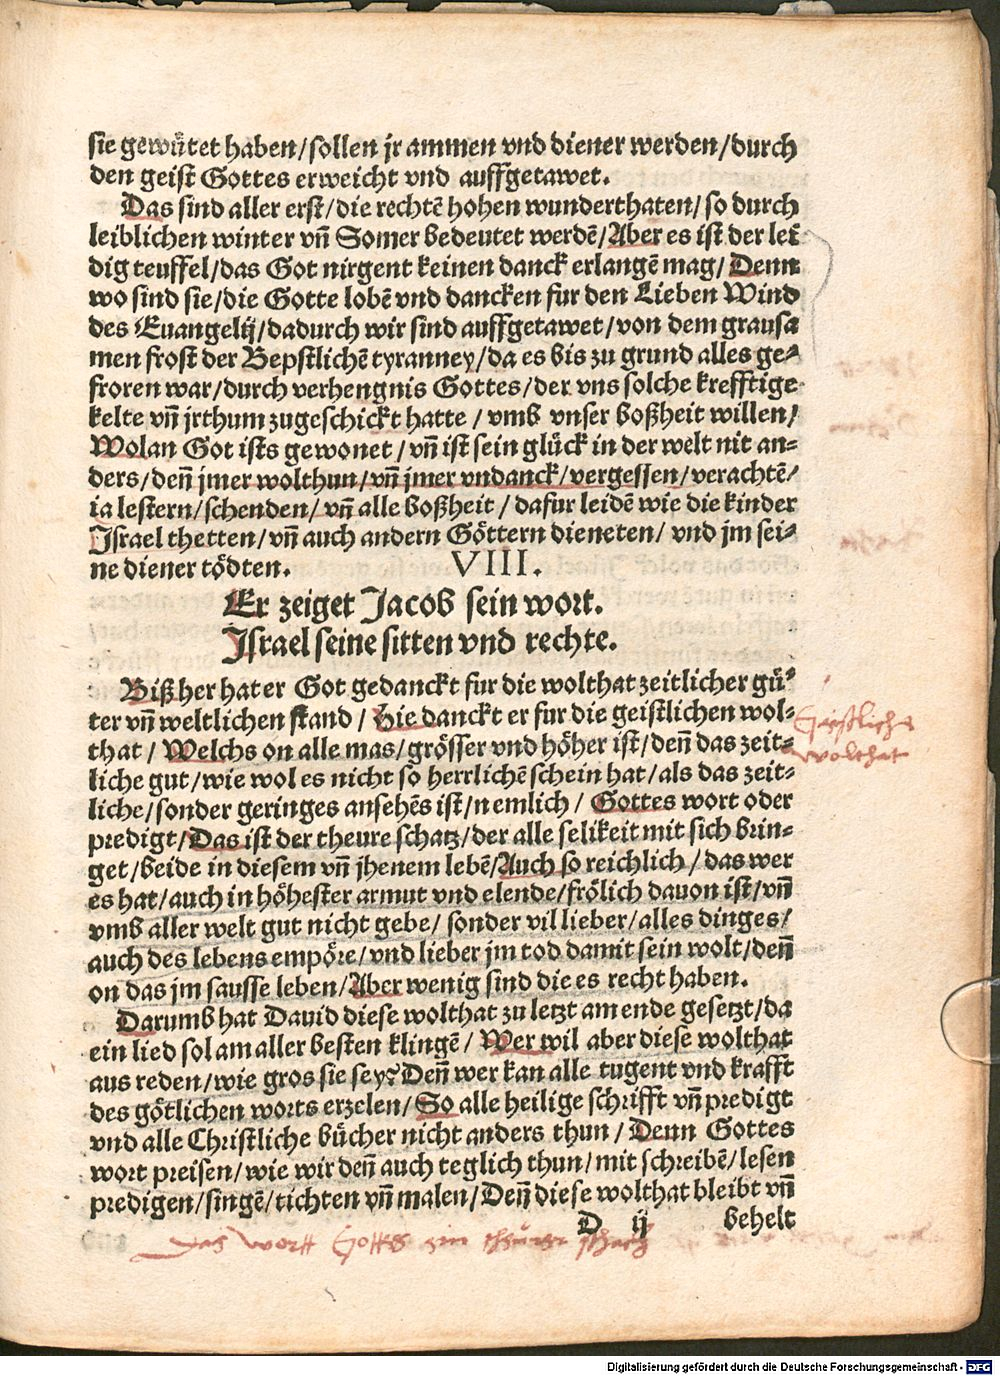 sie gewütet haben/sollen jr ammen vnd diener werden/durch
den geist Gottes erweicht vnd auffgetawet.
Das sind aller erst/die rechtē hohen wunderthaten/so durch
leiblichen winter vñ Somer bedeutet werdē/Aber es ist der lei
dig teuffel/das Got nirgent keinen danck erlangē mag/Denn
wo sind sie/die Gotte lobē vnd dancken fur den Lieben Wind
des Euangelij/dadurch wir sind auffgetawet/von dem grausa
men frost der Bepstlichē tyranney/da es bis zu grund alles ge-
froren war/durch verhengnis Gottes/der vns solche krefftige
kelte vñ jrthum zugeschickt hatte/vmb vnser boßheit willen/
Wolan Got ists gewonet/vñ ist sein glück in der welt nit an-
ders/deñ jmer wolthun/vñ jmer vndanck/vergessen/verachtē/
ia lestern/schenden/vñ alle boßheit/dafur leidē wie die kinder
Israel thetten/vñ auch andern Göttern dieneten/vnd jm sei-
ne diener tödten. VIII.
Er zeiget Jacob sein wort.
Israel seine sitten vnd rechte.
Biß her hat er Got gedanckt fur die wolthat zeitlicher gü-
ter vñ weltlichen stand/Hie danckt er fur die geistlichen wol-
that/Welchs on alle mas/grösser vnd höher ist/deñ das zeit-
liche gut/wie wol es nicht so herrlichē schein hat/als das zeit-
liche/sonder geringes ansehēs ist/nemlich/Gottes wort oder
predigt/Das ist der theure schatz/der alle selikeit mit sich brin-
get/beide in diesem vñ jhenem lebē/Auch so reichlich/das wer
es hat/auch in höhester armut vnd elende/frölich dauon ist/vñ
vmb aller welt gut nicht gebe/sonder vil lieber/alles dinges/
auch des lebens empöre/vnd lieber jm tod damit sein wolt/deñ
on das jm sausse leben/Aber wenig sind die es recht haben.
Darumb hat Dauid diese wolthat zu letzt am ende gesetzt/da
ein lied sol am aller besten klingē/Wer wil aber diese wolthat
aus reden/wie gros sie sey? Deñ wer kan alle tugent vnd krafft
des götlichen worts erzelen/So alle heilige schrifft vñ predigt
vnd alle Christliche bücher nicht anders thun/Denn Gottes
wort preisen/wie wir deñ auch teglich thun/mit schreibē/lesen
predigen/singē/tichten vñ malen/Deñ diese wolthat bleibt vñ
D ij behelt
Geistliche
wolthat
Das wortt Gottes ein theurer schatz
Digitalisierung gefördert durch die Deutsche Forschungsgemeinschaft - DFG